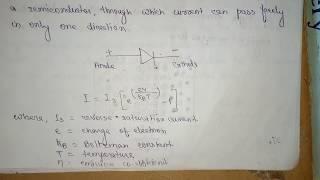 a semiconductor, through which current can pass freely
in only one direction.
+ -
Anode
I = I_s [e^(eV/k_B T) - 1]
where, I_s = reverse-saturation current
e = charge of electron
k_B = Boltzman constant
T = temperature
η = emission co-efficient